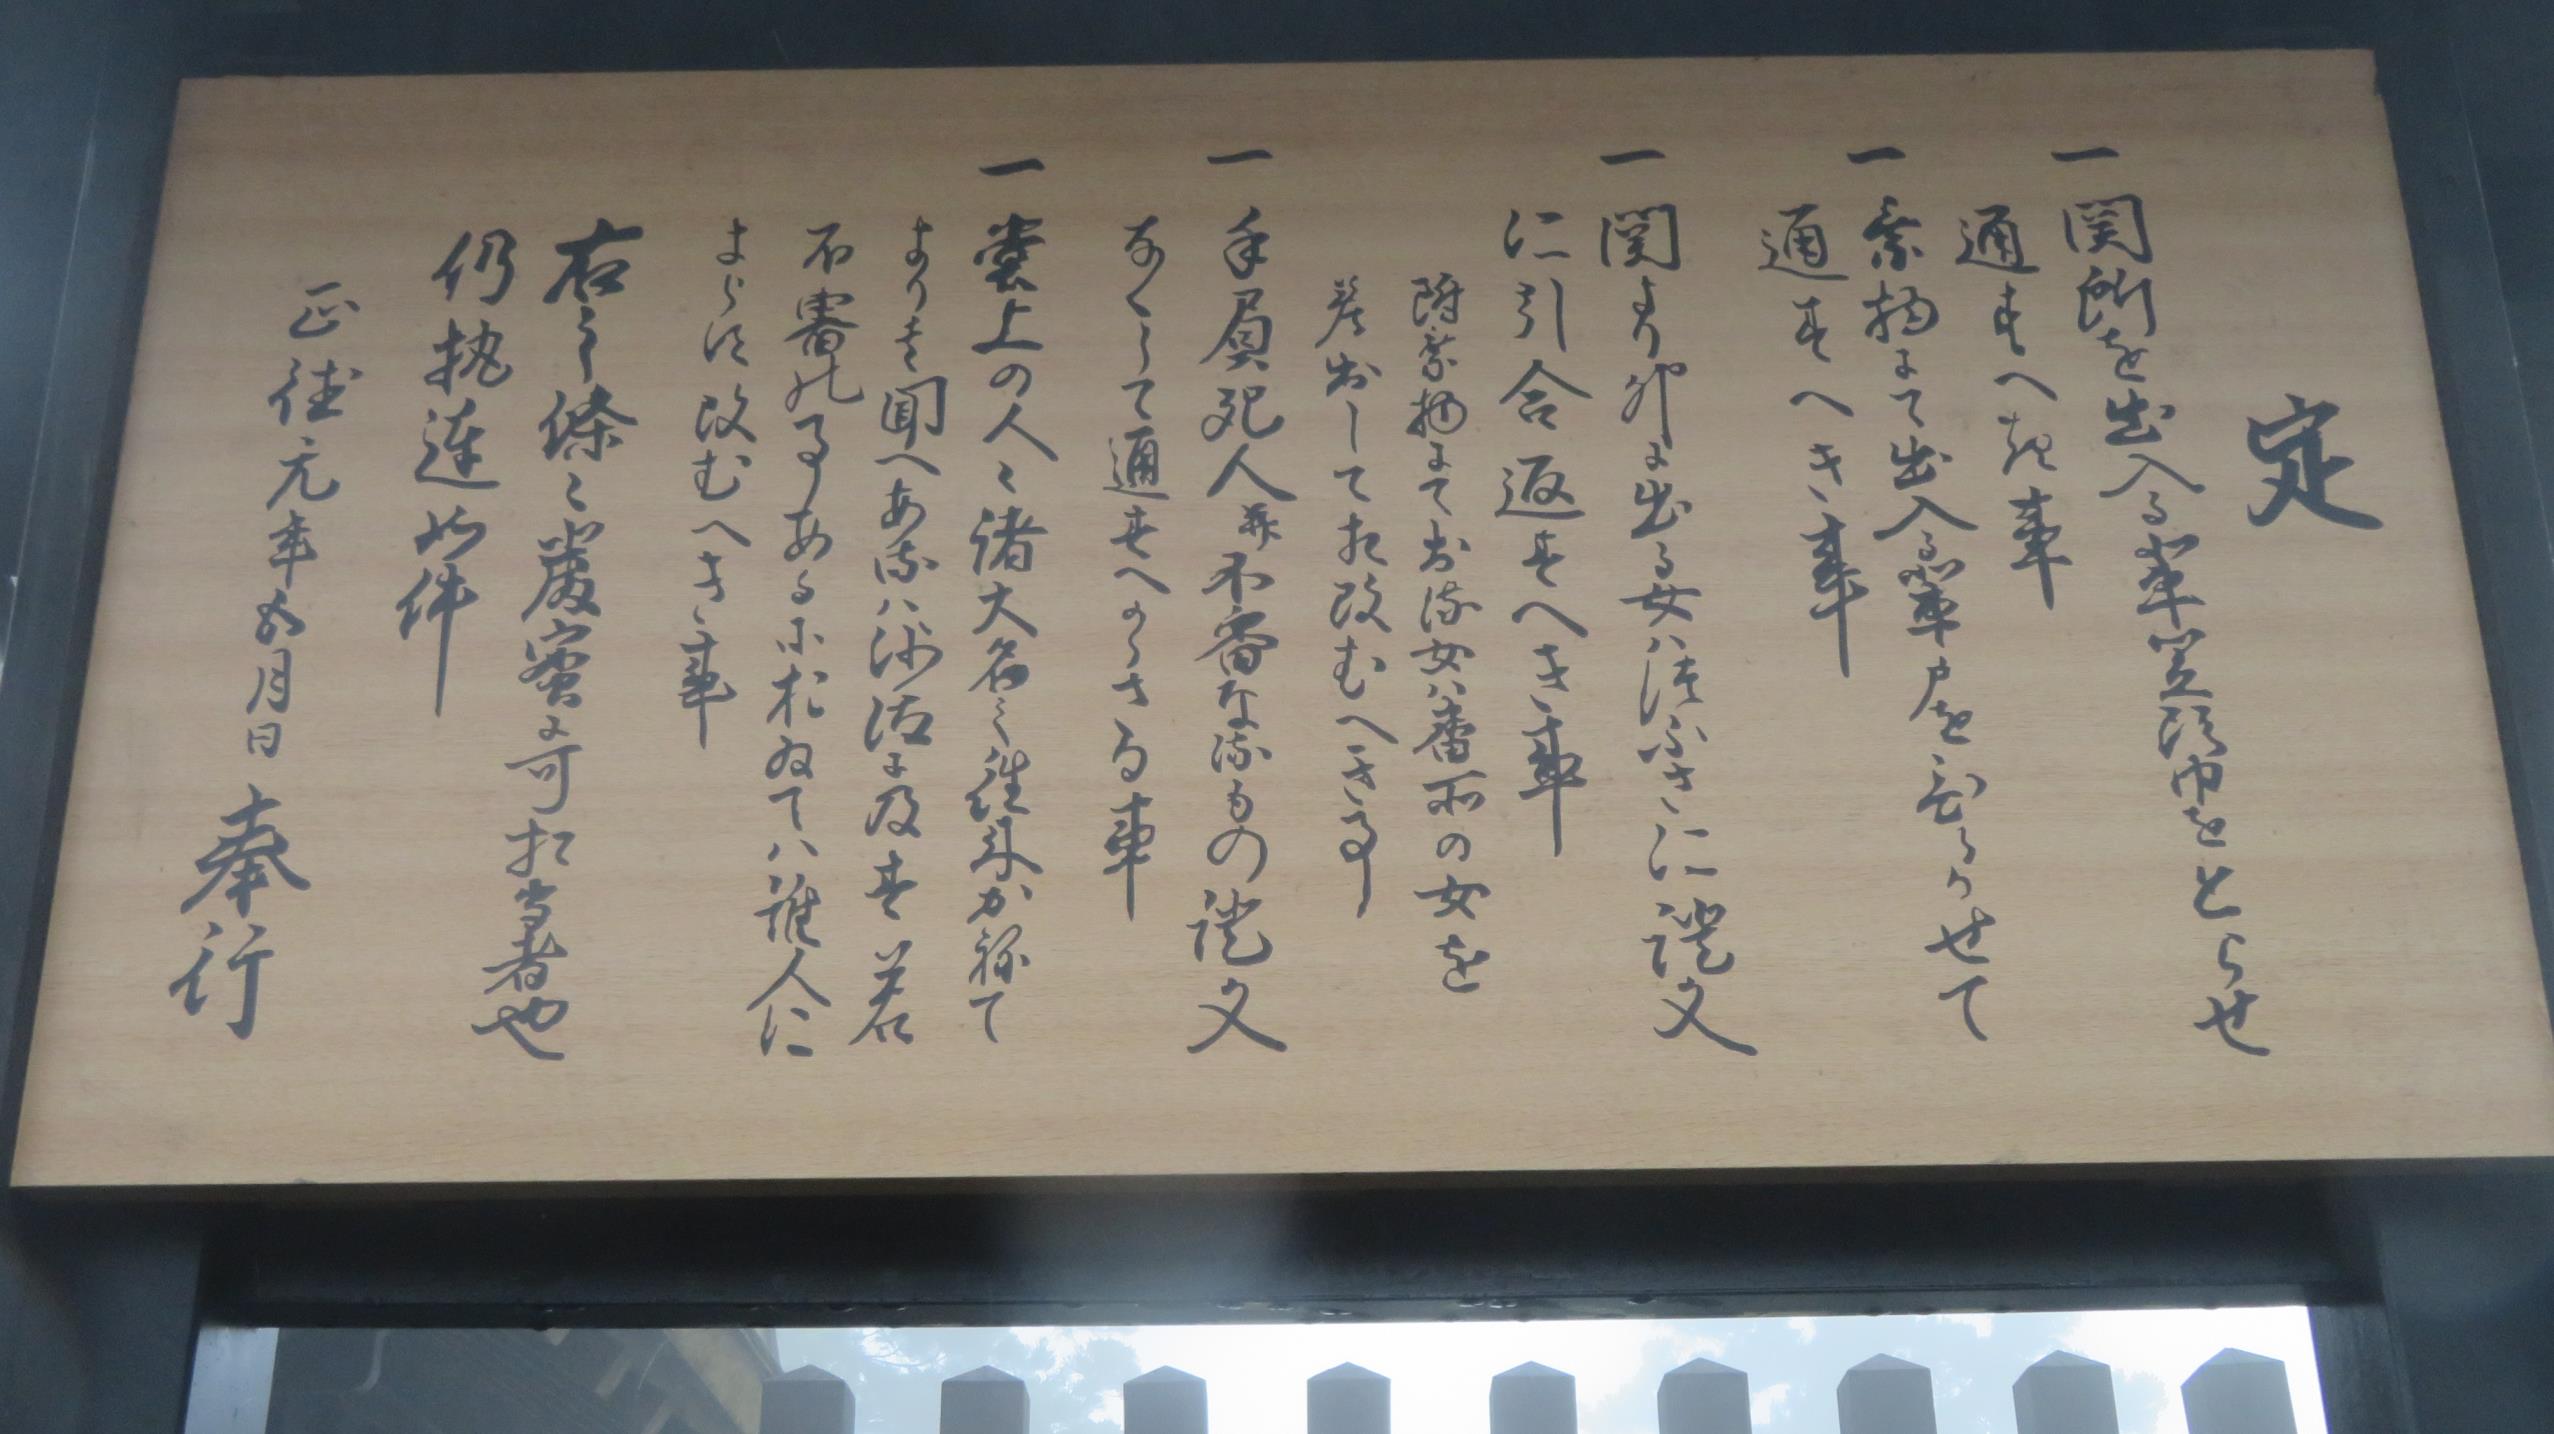 定
一 関所を出入る輩笠頭巾をとらせ
通すへき事
一 乗物にて出入る輩戸をひらかせて
通すへき事
一 関より外に出る女ハつふさに證文
に引合返すへき事
附乗物にて出る女ハ番所の女を
差出して相改むへき事
一 手負死人并不審なるもの證文
なくして通すへからさる事
一 堂上の人々諸大名之往来かねて
より其聞へあるハ沙汰に及す若
不審の事あるにおゐてハ誰人に
よらす改むへき事
右之條々厳密に可相守者也
仍執達如件
正徳元年五月日 奉行